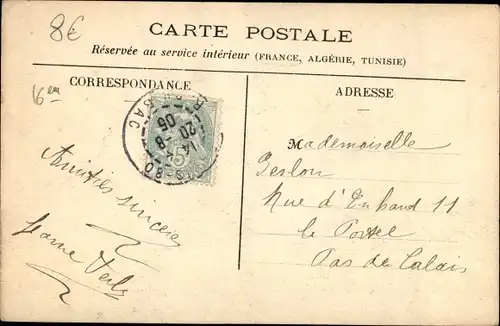 8€
CARTE POSTALE
Réservée au service intérieur (FRANCE, ALGÉRIE, TUNISIE)
CORRESPONDANCE
ADRESSE
Amitiés sincères
Jeanne
Mademoiselle
Rue d' 11
le Portel
Pas de Calais
14
20 -8
05
5